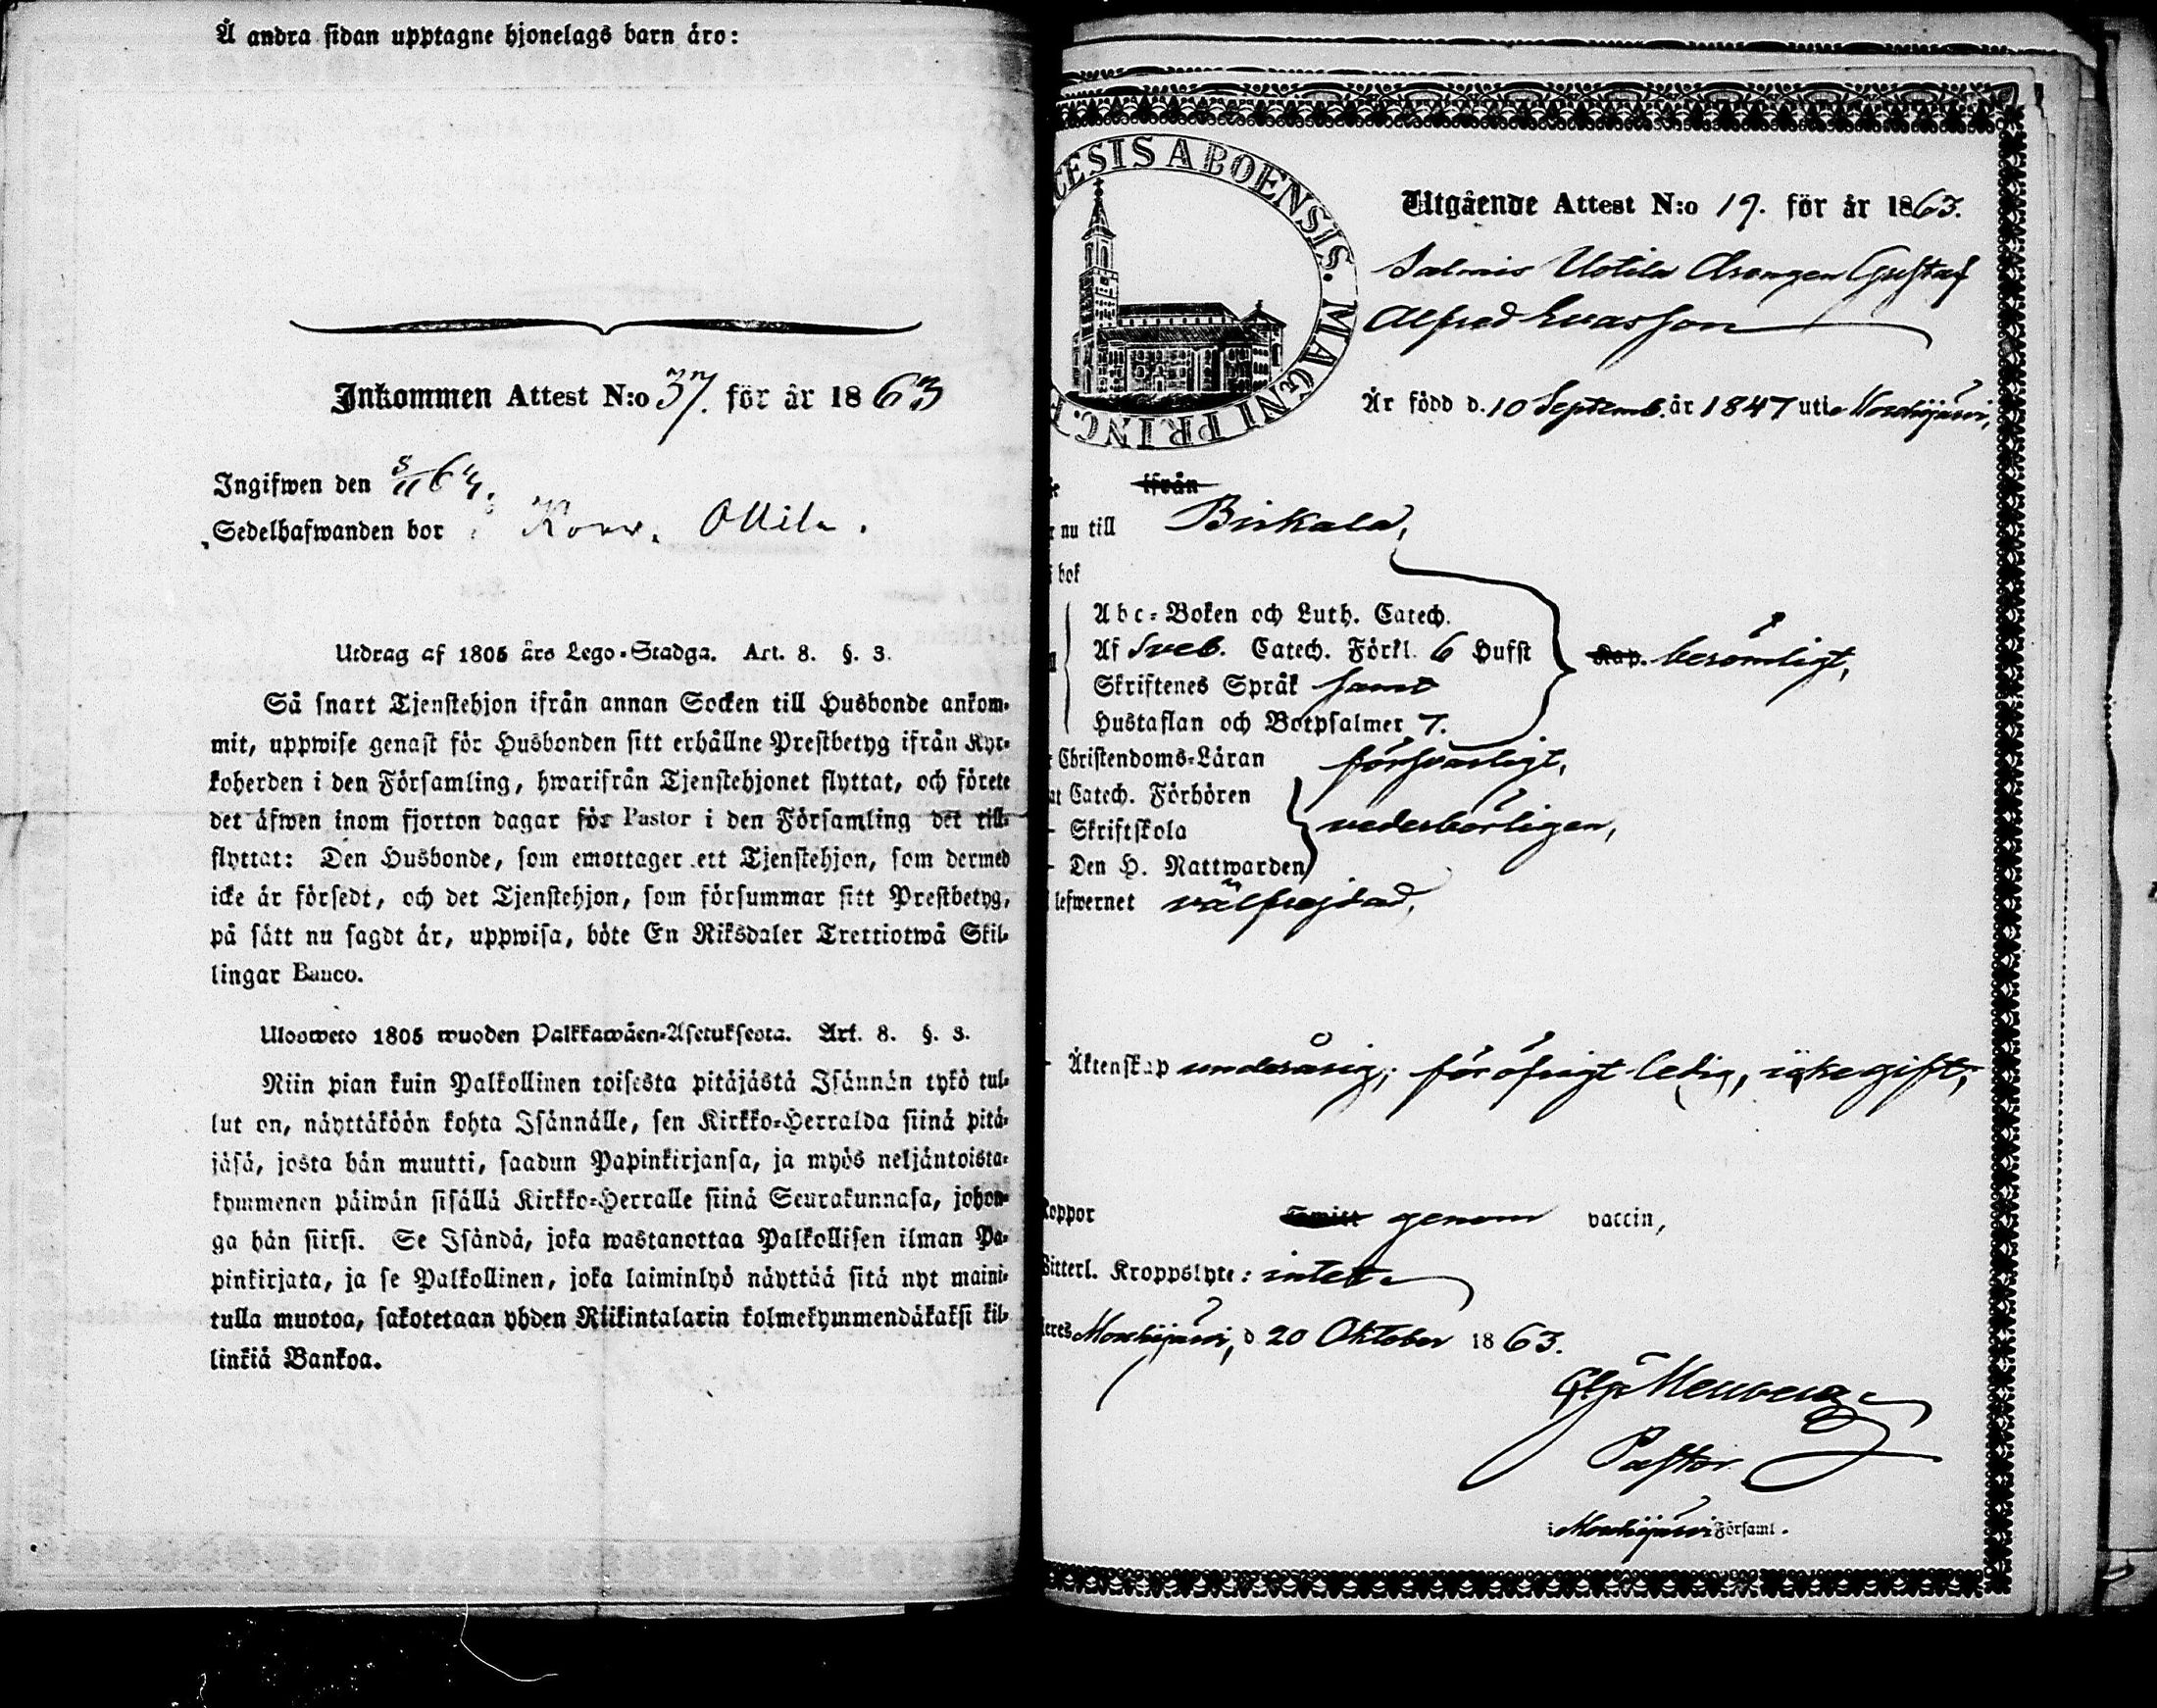 Å andra sidan upptagne hjonelags barn äro:
Inkommen Attest N:o 37. för år 1863
Ingifwen den 8/11 64.
Sedelhafwanden bor Ottila.
Utdrag af 1805 års Lego-Stadga. Art. 8. §. 3.
Så snart Tjenstehjon ifrån annan Socken till Husbonde ankom-
mit, uppwise genast för Husbonden sitt erhållne Prestbetyg ifrån Kyr-
koherden i den Församling, hwarifrån Tjenstehjonet flyttat, och förete
det äfwen inom fjorton dagar för Pastor i den Församling det till-
flyttat: Den Husbonde, som emottager ett Tjenstehjon, som dermed
icke är försedt, och det Tjenstehjon, som försummar sitt Prestbetyg,
på sätt nu sagdt är, uppwisa, böte En Riksdaler Trettiotwå Skil-
lingar Banco.
Ulosweto 1805 wuoden Palkkawäen-Asetuksesta. Art. 8. §. 3.
Niin pian kuin Palkollinen toisesta pitäjästä Isännän tykö tul-
lut on, näyttäköön kohta Isännälle, sen Kirkko-Herralda siinä pitä-
jäsä, josta hän muutti, saadun Papinkirjansa, ja myös neljäntoista-
kymmenen päiwän sisällä Kirkko-Herralle siinä Seurakunnasa, johon-
ga hän siirsi. Se Isändä, joka wastanottaa Palkollisen ilman Pa-
pinkirjata, ja se Palkollinen, joka laiminlyö näyttää sitä nyt maini-
tulla muotoa, sakotetaan yhden Riikintalarin kolmekymmendäkaksi kil-
linkiä Bankoa.
CESIS ABOENSIS. MAGNI PRINC. F
Utgående Attest N:o 19. för år 1863.
Salmis Uotila Drengen Gustaf
Alfred Evasson
Är född d. 10 Septemb. år 1847 uti Mouhijärvi,
ifrån
r nu till Birkala,
i bok
Abc-Boken och Luth. Catech.
Af Sveb. Catech. Förkl. 6 Hufst
Kap. berömligt,
Skriftenes Språk samt
Hustaflan och Botpsalmer 7.
Christendoms-Läran försvarligt,
at Catech. Förhören
- Skriftskola vederbörligen,
- Den H. Nattwarden
lefwernet välfrejdad,
- Äktenskap underårig; för öfrigt ledig, icke gift,
Koppor genom vaccin,
Witterl. Kroppslyte: intet
teres Mouhijärvi, d 20 Oktober 1863.
Pastor
i Mouhijärvi Församl.